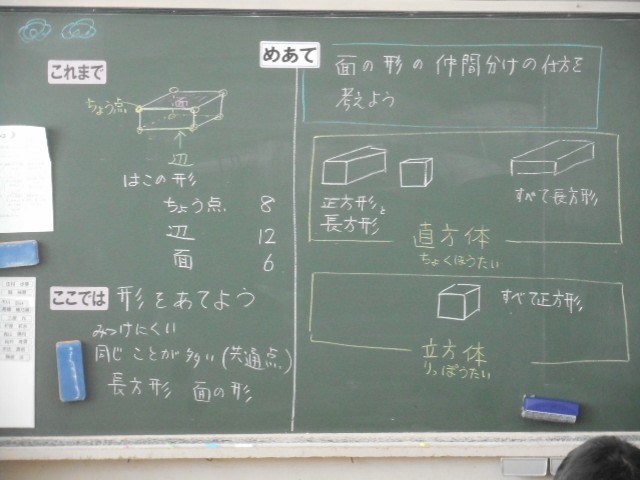 これまで
ちょう点
面
辺
はこの形
ちょう点 8
辺 12
面 6
ここでは 形をあてよう
みつけにくい
同じことが多い(共通点)
長方形 面の形
めあて
面の形の仲間分けの仕方を
考えよう
正方形と
長方形
すべて長方形
直方体
ちょくほうたい
すべて正方形
立方体
りっぽうたい